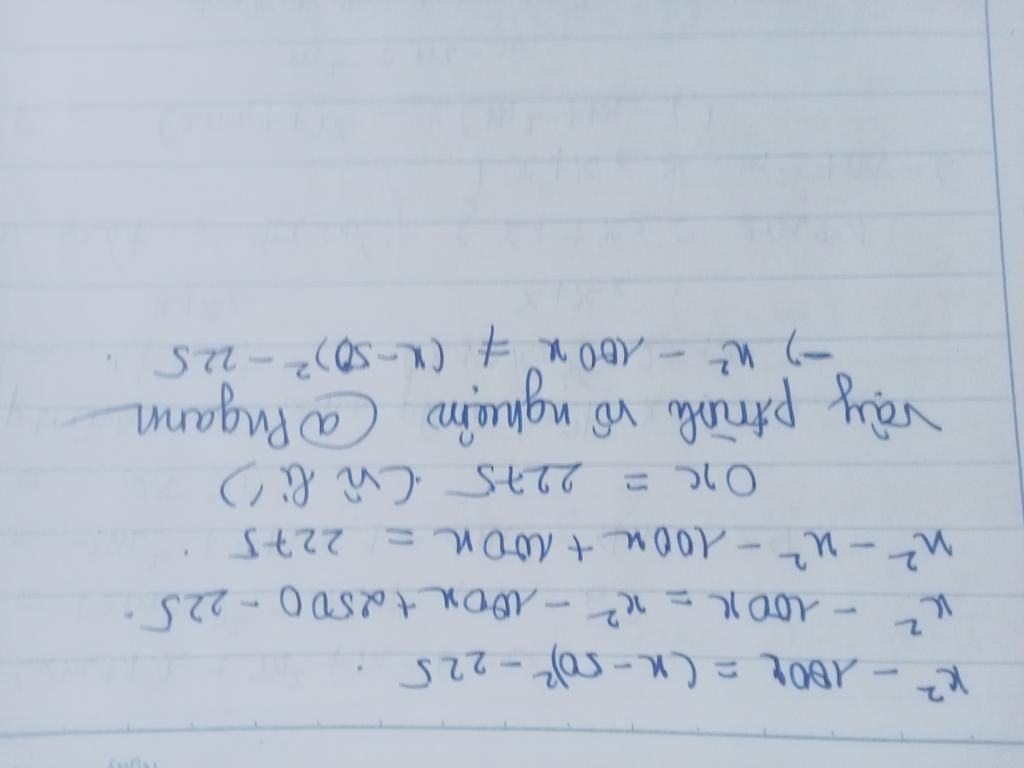 x² - 100x = (x-50)² - 225.
x² - 100x = x² - 100x + 2500 - 225.
x² - x² - 100x + 100x = 2275.
0x = 2275 (vô lí!)
Vậy ptrình vô nghiệm @Pngann
→ x² - 100x ≠ (x-50)² - 225.